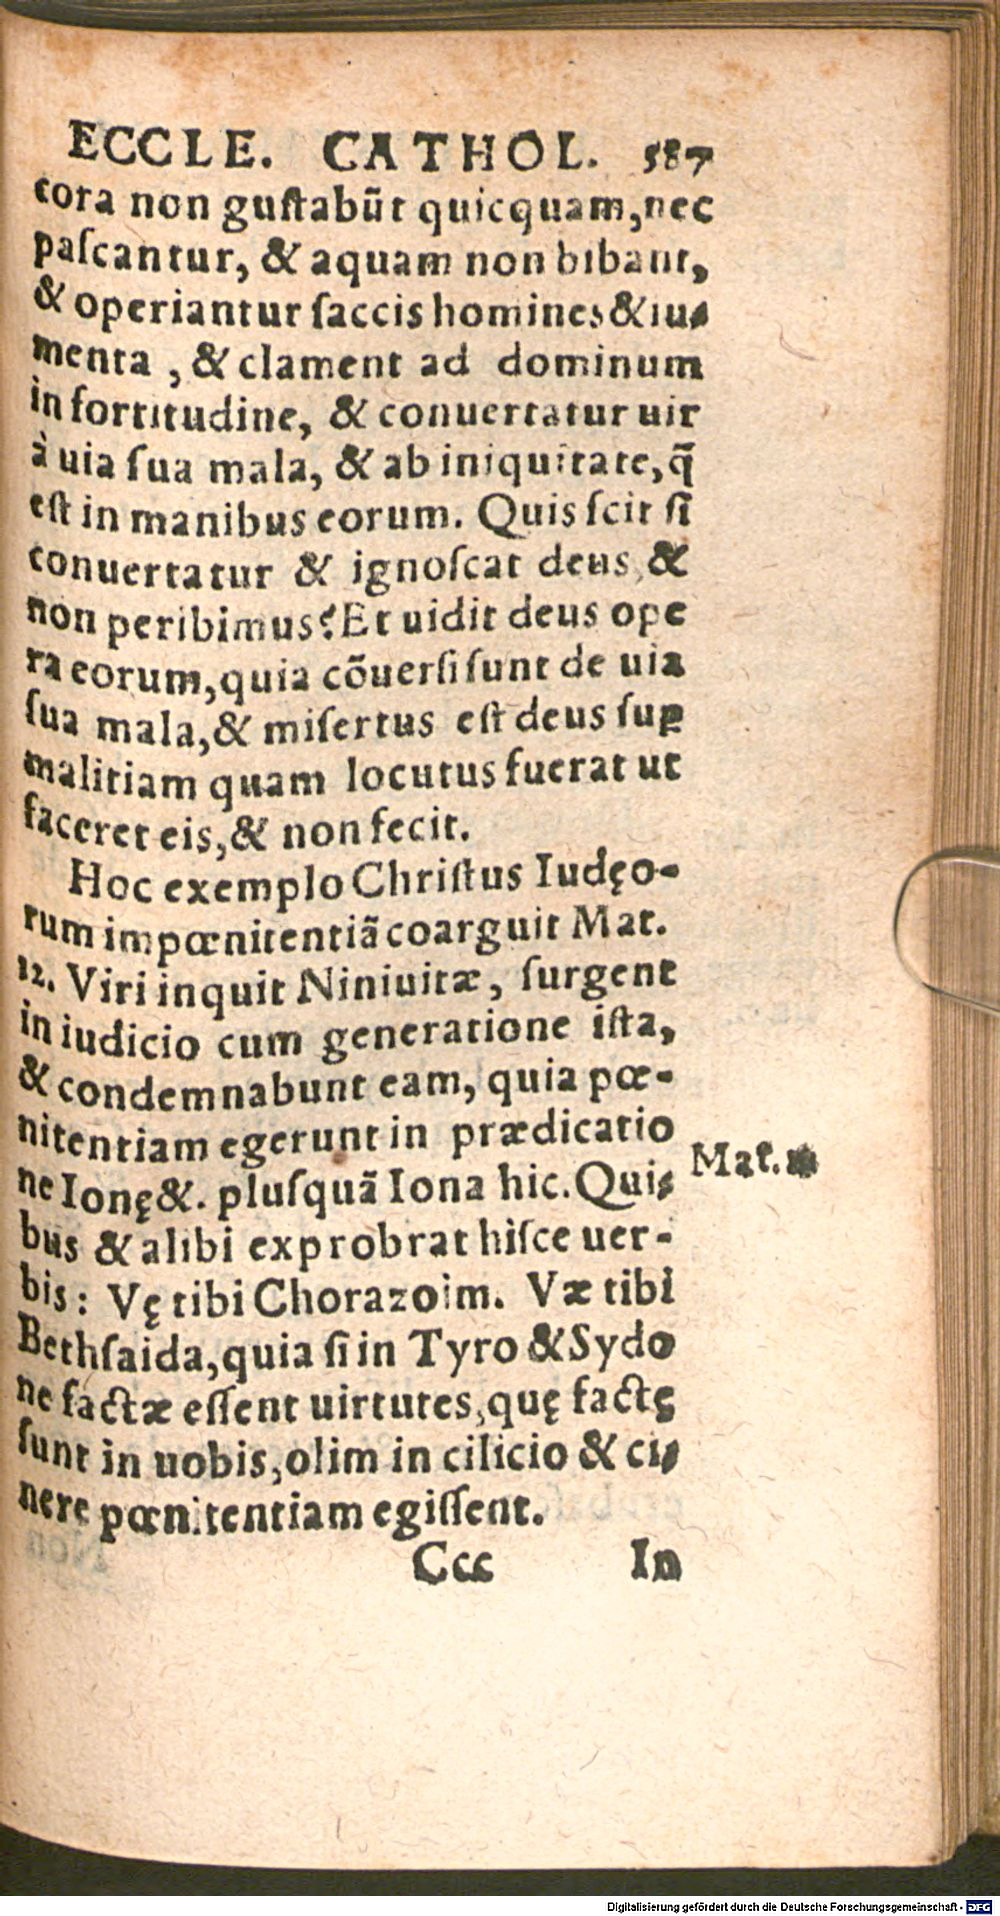 ECCLE. CATHOL. 587
cora non gustabũt quicquam, nec
pascantur, & aquam non bibant,
& operiantur saccis homines & iu-
menta , & clament ad dominum
in fortitudine, & conuertatur uir
à uia sua mala, & ab iniquitate, q̃
est in manibus eorum. Quis scit si
conuertatur & ignoscat deus, &
non peribimus? Et uidit deus ope
ra eorum, quia cõuersi sunt de uia
sua mala, & misertus est deus suꝑ
malitiam quam locutus fuerat ut
faceret eis, & non fecit.
Hoc exemplo Christus Iudęo-
rum impœnitentiã coarguit Mat.
12. Viri inquit Niniuitæ, surgent
in iudicio cum generatione ista,
& condemnabunt eam, quia pœ-
nitentiam egerunt in prædicatio
ne Ionę &. plusquã Iona hic. Qui-
bus & alibi exprobrat hisce uer-
bis: Vę tibi Chorazoim. Væ tibi
Bethsaida, quia si in Tyro & Sydo
ne factæ essent uirtutes, quę factę
sunt in uobis, olim in cilicio & ci-
nere pœnitentiam egissent.
Mat.
Ccc In
Digitalisierung gefördert durch die Deutsche Forschungsgemeinschaft - DFG